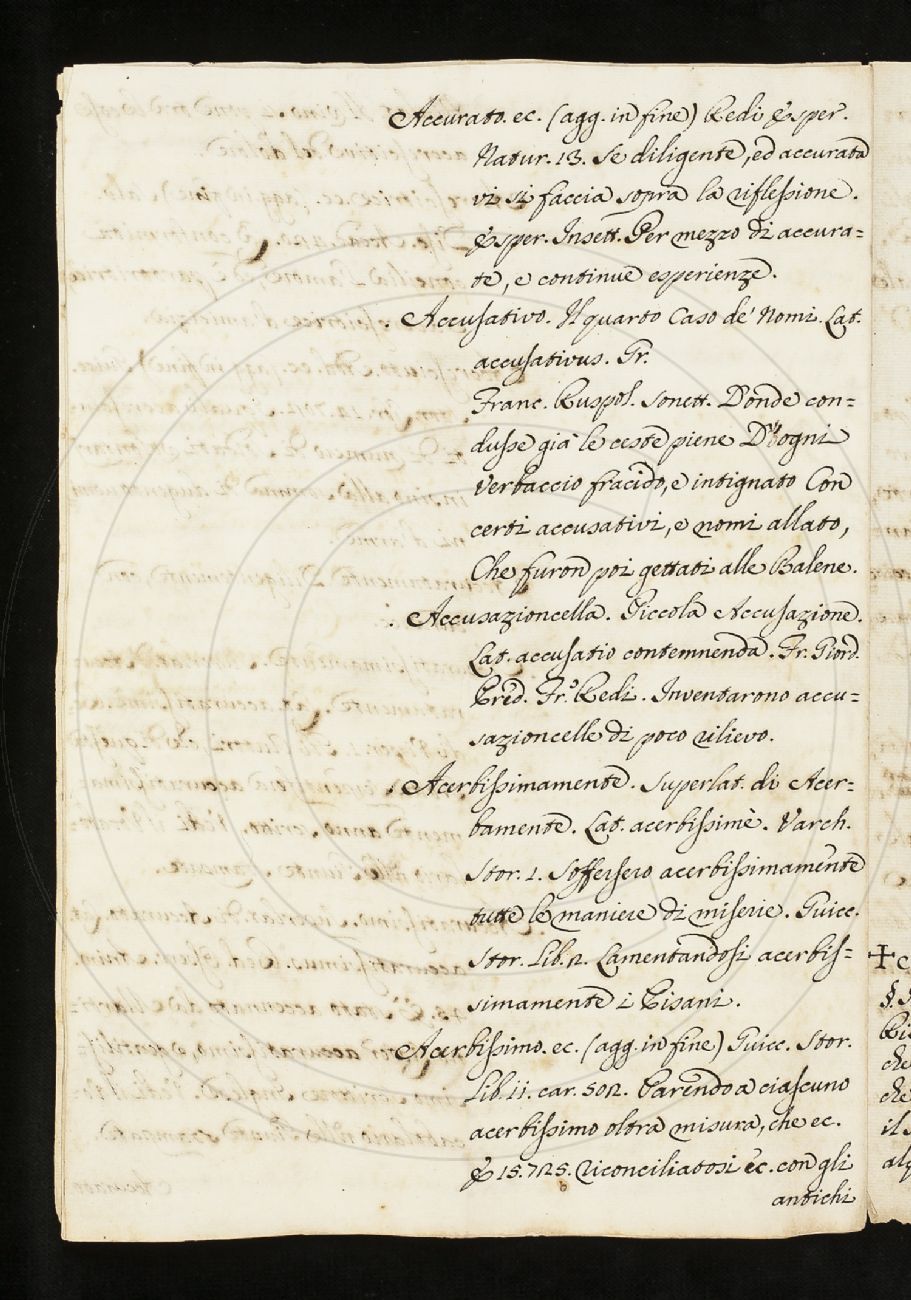 Accurato. ec. (agg. in fine) Redi Esper.
Natur. 13. Se diligente, ed accurata
vi si faccia sopra la riflessione.
Esper. Insett. Per mezzo di accura=
te, e continue esperienze.
Accusativo. Il quarto Caso de' Nomi. Lat.
accusativus. Gr.
Franc. Ruspol. Sonett. D'onde con=
dusse già le ceste piene D'ogni
Verbaccio fracido, e intignato Con
certi accusativi, e nomi allato,
Che furon poi gettati alle Balene.
Accusazioncella. Piccola Accusazione.
Lat. accusatio contemnenda. Fr. Giord.
Pred. Fr. Redi. Inventarono accu=
sazioncelle di poco rilievo.
Acerbissimamente. Superlat. di Acer=
bamente. Lat. acerbissimè. Varch.
Stor. 1. Soffersero acerbissimamente
tutte le maniere di miserie. Guicc.
Stor. Lib. 2. Lamentandosi acerbis=
simamente i Pisani.
Acerbissimo. ec. (agg. in fine) Guicc. Stor.
Lib. 11. car. 502. Parendo a ciascuno
acerbissimo oltra misura, che ec.
E 15. 725. riconciliatosi ec. con gli
antichi